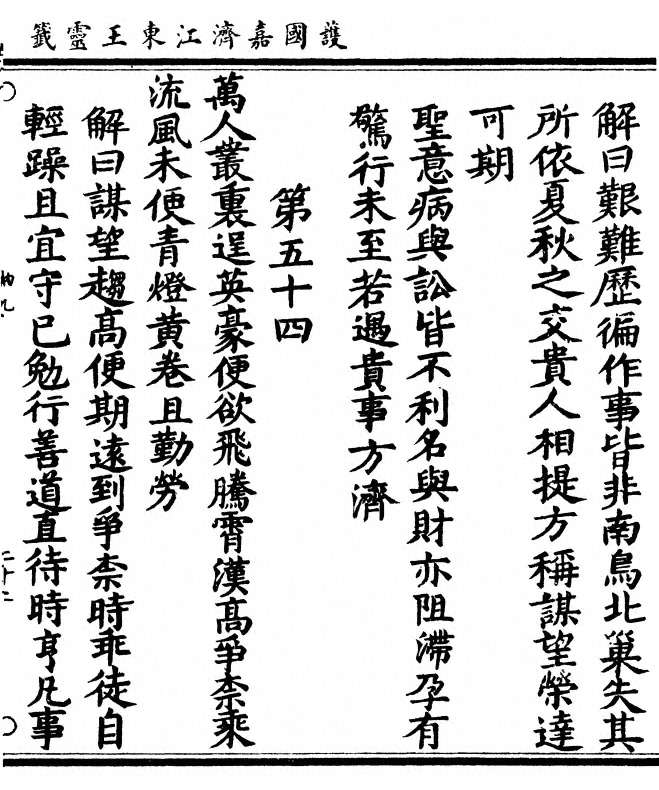 護國嘉濟江東王靈籤
解曰艱難歷徧作事皆非南鳥北巢失其
所依夏秋之交貴人相提方稱謀望榮達
可期
聖意病與訟皆不利名與財亦阻滯孕有
驚行未至若遇貴事方濟
第五十四
萬人叢裏逞英豪便欲飛騰霄漢高爭柰乘
流風未便青燈黃卷且勤勞
解曰謀望趨高便期遠到爭柰時乖徒自
輕躁且宜守已勉行善道直待時亨凡事
二十二